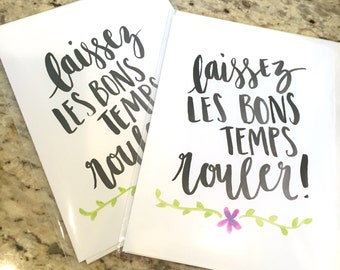 laissez
LES BONS
TEMPS
rouler
laissez
LES BONS
TEMPS
rouler!